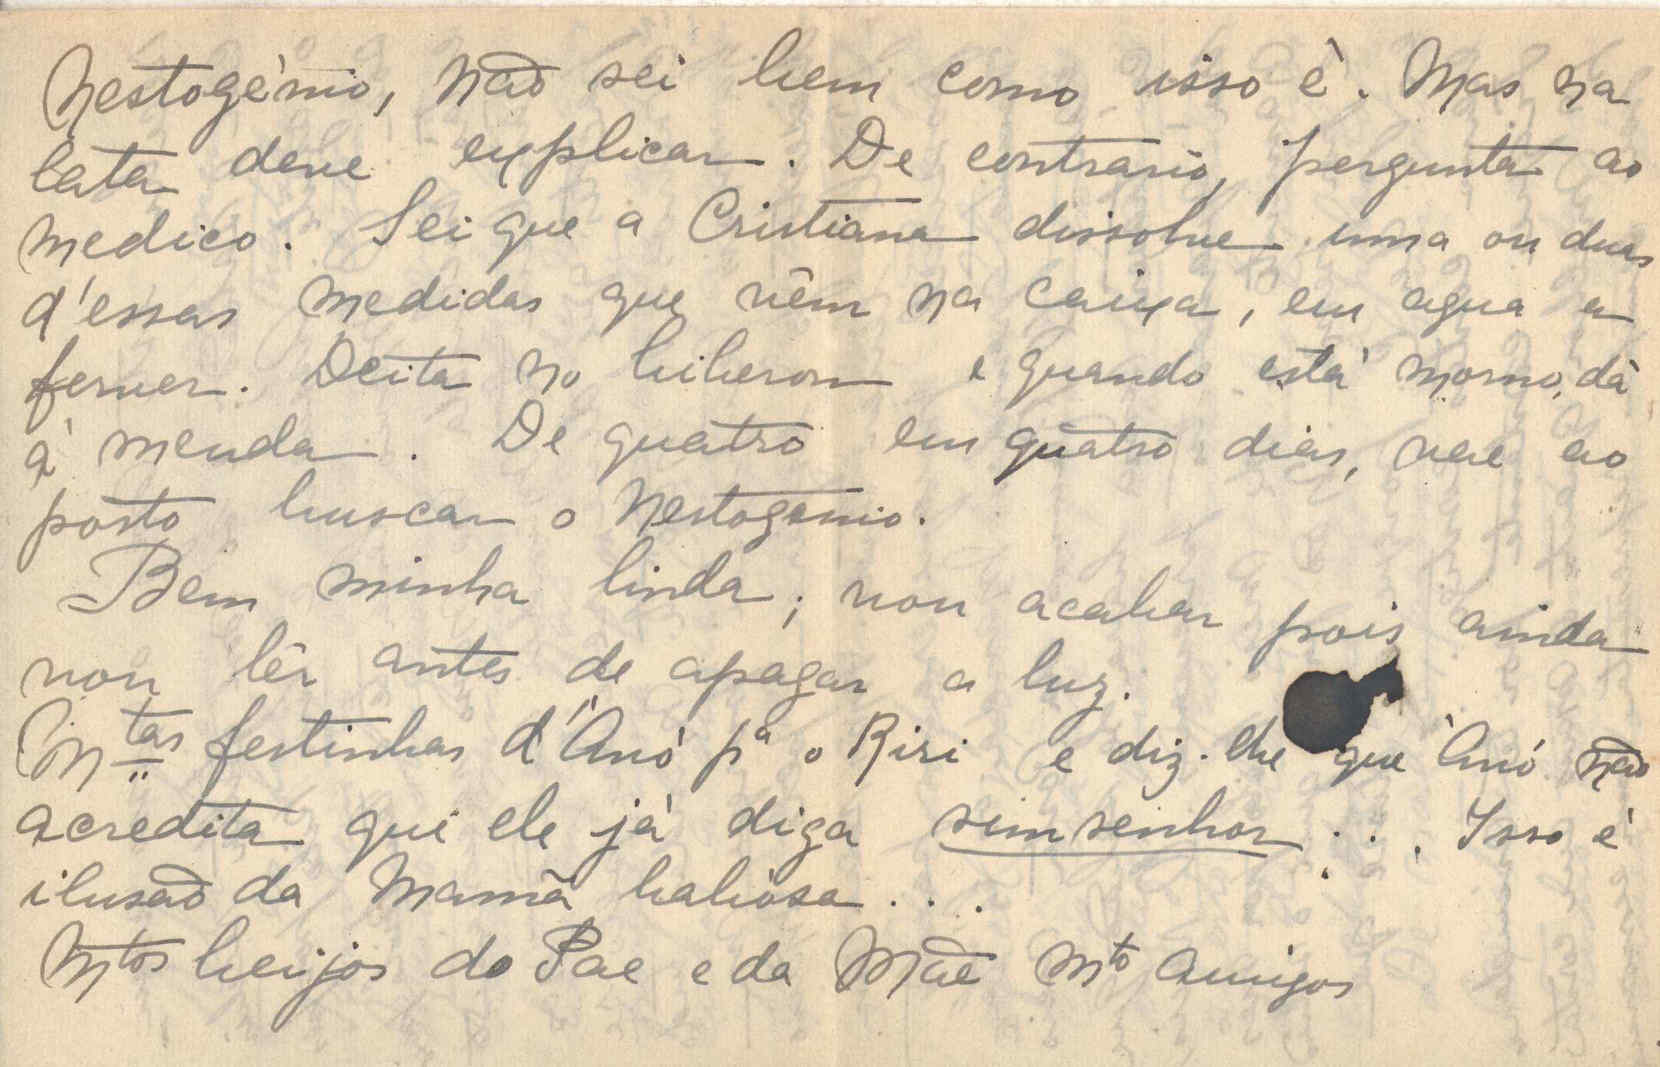 Nestogénio, não sei bem como isso é. Mas na
lata deve explicar. De contrario, pergunta ao
medico. Sei que a Cristiana dissolve uma ou duas
d'essas medidas que vêm na caixa, em agua a
ferver. Deita no biberon e quando está morno, dá
à menda. De quatro em quatro dias, vae ao
posto buscar o Nestogenio.
Bem minha linda; vou acabar pois ainda
vou lêr antes de apagar a luz.
Mtas festinhas d'Anó pa o Riri e diz-lhe que Anó não
acredita que ele já diga sim senhor... Isso é
ilusão da Mamã babósa...
Mtos beijos do Pae e da Mãe Mto Amigos